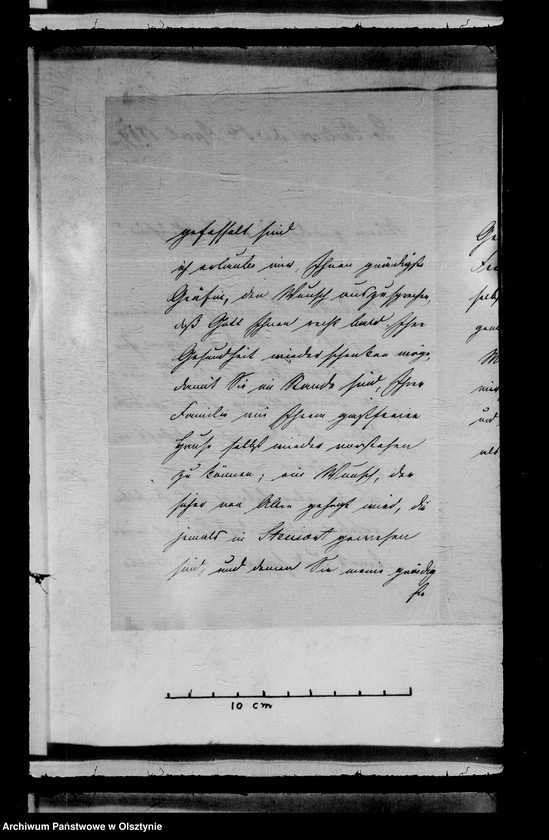 gefesselt sind
ich erlaube mir, Ihnen gnädigste
Gräfin, den Wunsch auszusprechen,
daß Gott Ihnen recht bald Ihre
Gesundheit wiederschenken möge,
damit Sie im Stande sind, Ihrer
Familie und Ihrem gastfreien
Hause selbst wieder vorstehen
zu können; ein Wunsch, der
sicher von Allen gehegt wird, die
jemals in Steinort gewesen
sind, und denen Sie meine gnädig
ste
Ge
selbst
und
als
10 cm
Archiwum Państwowe w Olsztynie